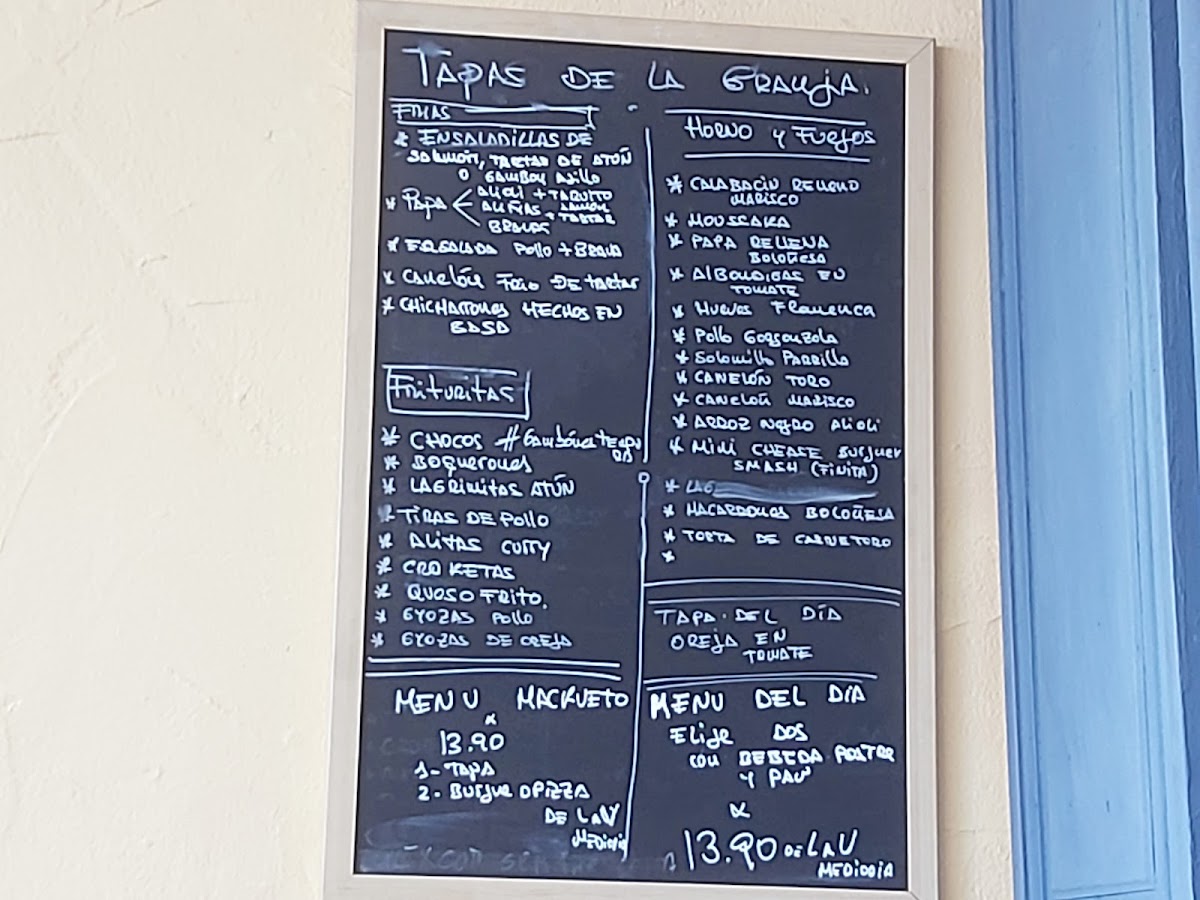 TAPAS DE LA GRANJA.
FRIAS
* ENSALADILLAS DE
SALMÓN, TARTAR DE ATÚN
O GAMBON AJILLO
* PAPA < ALIOLI + TAQUITO
ALIÑAS JAMON
+ TARTAR
BRAVAS
* ENSALADA POLLO + BRAVA
* CANELÓN FRIO DE TARTAR
* CHICHARRONES HECHOS EN
CASA
FRITURITAS
* CHOCOS #GAMBÓN
* BOQUERONES
* LAGRIMITAS ATÚN
* TIRAS DE POLLO
* ALITAS CURRY
* CROKETAS
* QUOSO FRITO.
* GYOZAS POLLO
* GYOZAS DE OREJA
MENU MACHUETO
13.90
1- TAPA
2- BURGUE O PIZZA
DE L A V
MEDIODIA
HORNO Y FUEGOS
* CALABACIN RELLENO
MARISCO
* MOUSSCAKA
* PAPA RELLENA
BOLOÑESA
* ALBONDIGAS EN
TOMATE
* HUEVOS FLAMENCA
* POLLO GORGONZOLA
* SOLOMILLO PARRILLA
* CANELÓN TORO
* CANELON MARISCO
* ARROZ NEGRO ALIOLI
* MINI CHEASE BURGUER
SMASH (FINITA)
* LAG
* MACARRONES BOLOÑESA
* TORTA DE CARNE TORO
*
TAPA DEL DÍA
OREJA EN
TOMATE
MENU DEL DÍA
ELIJE DOS
CON BEBIDA POSTRE
Y PAN
13.90 DE L A V
MEDIODIA